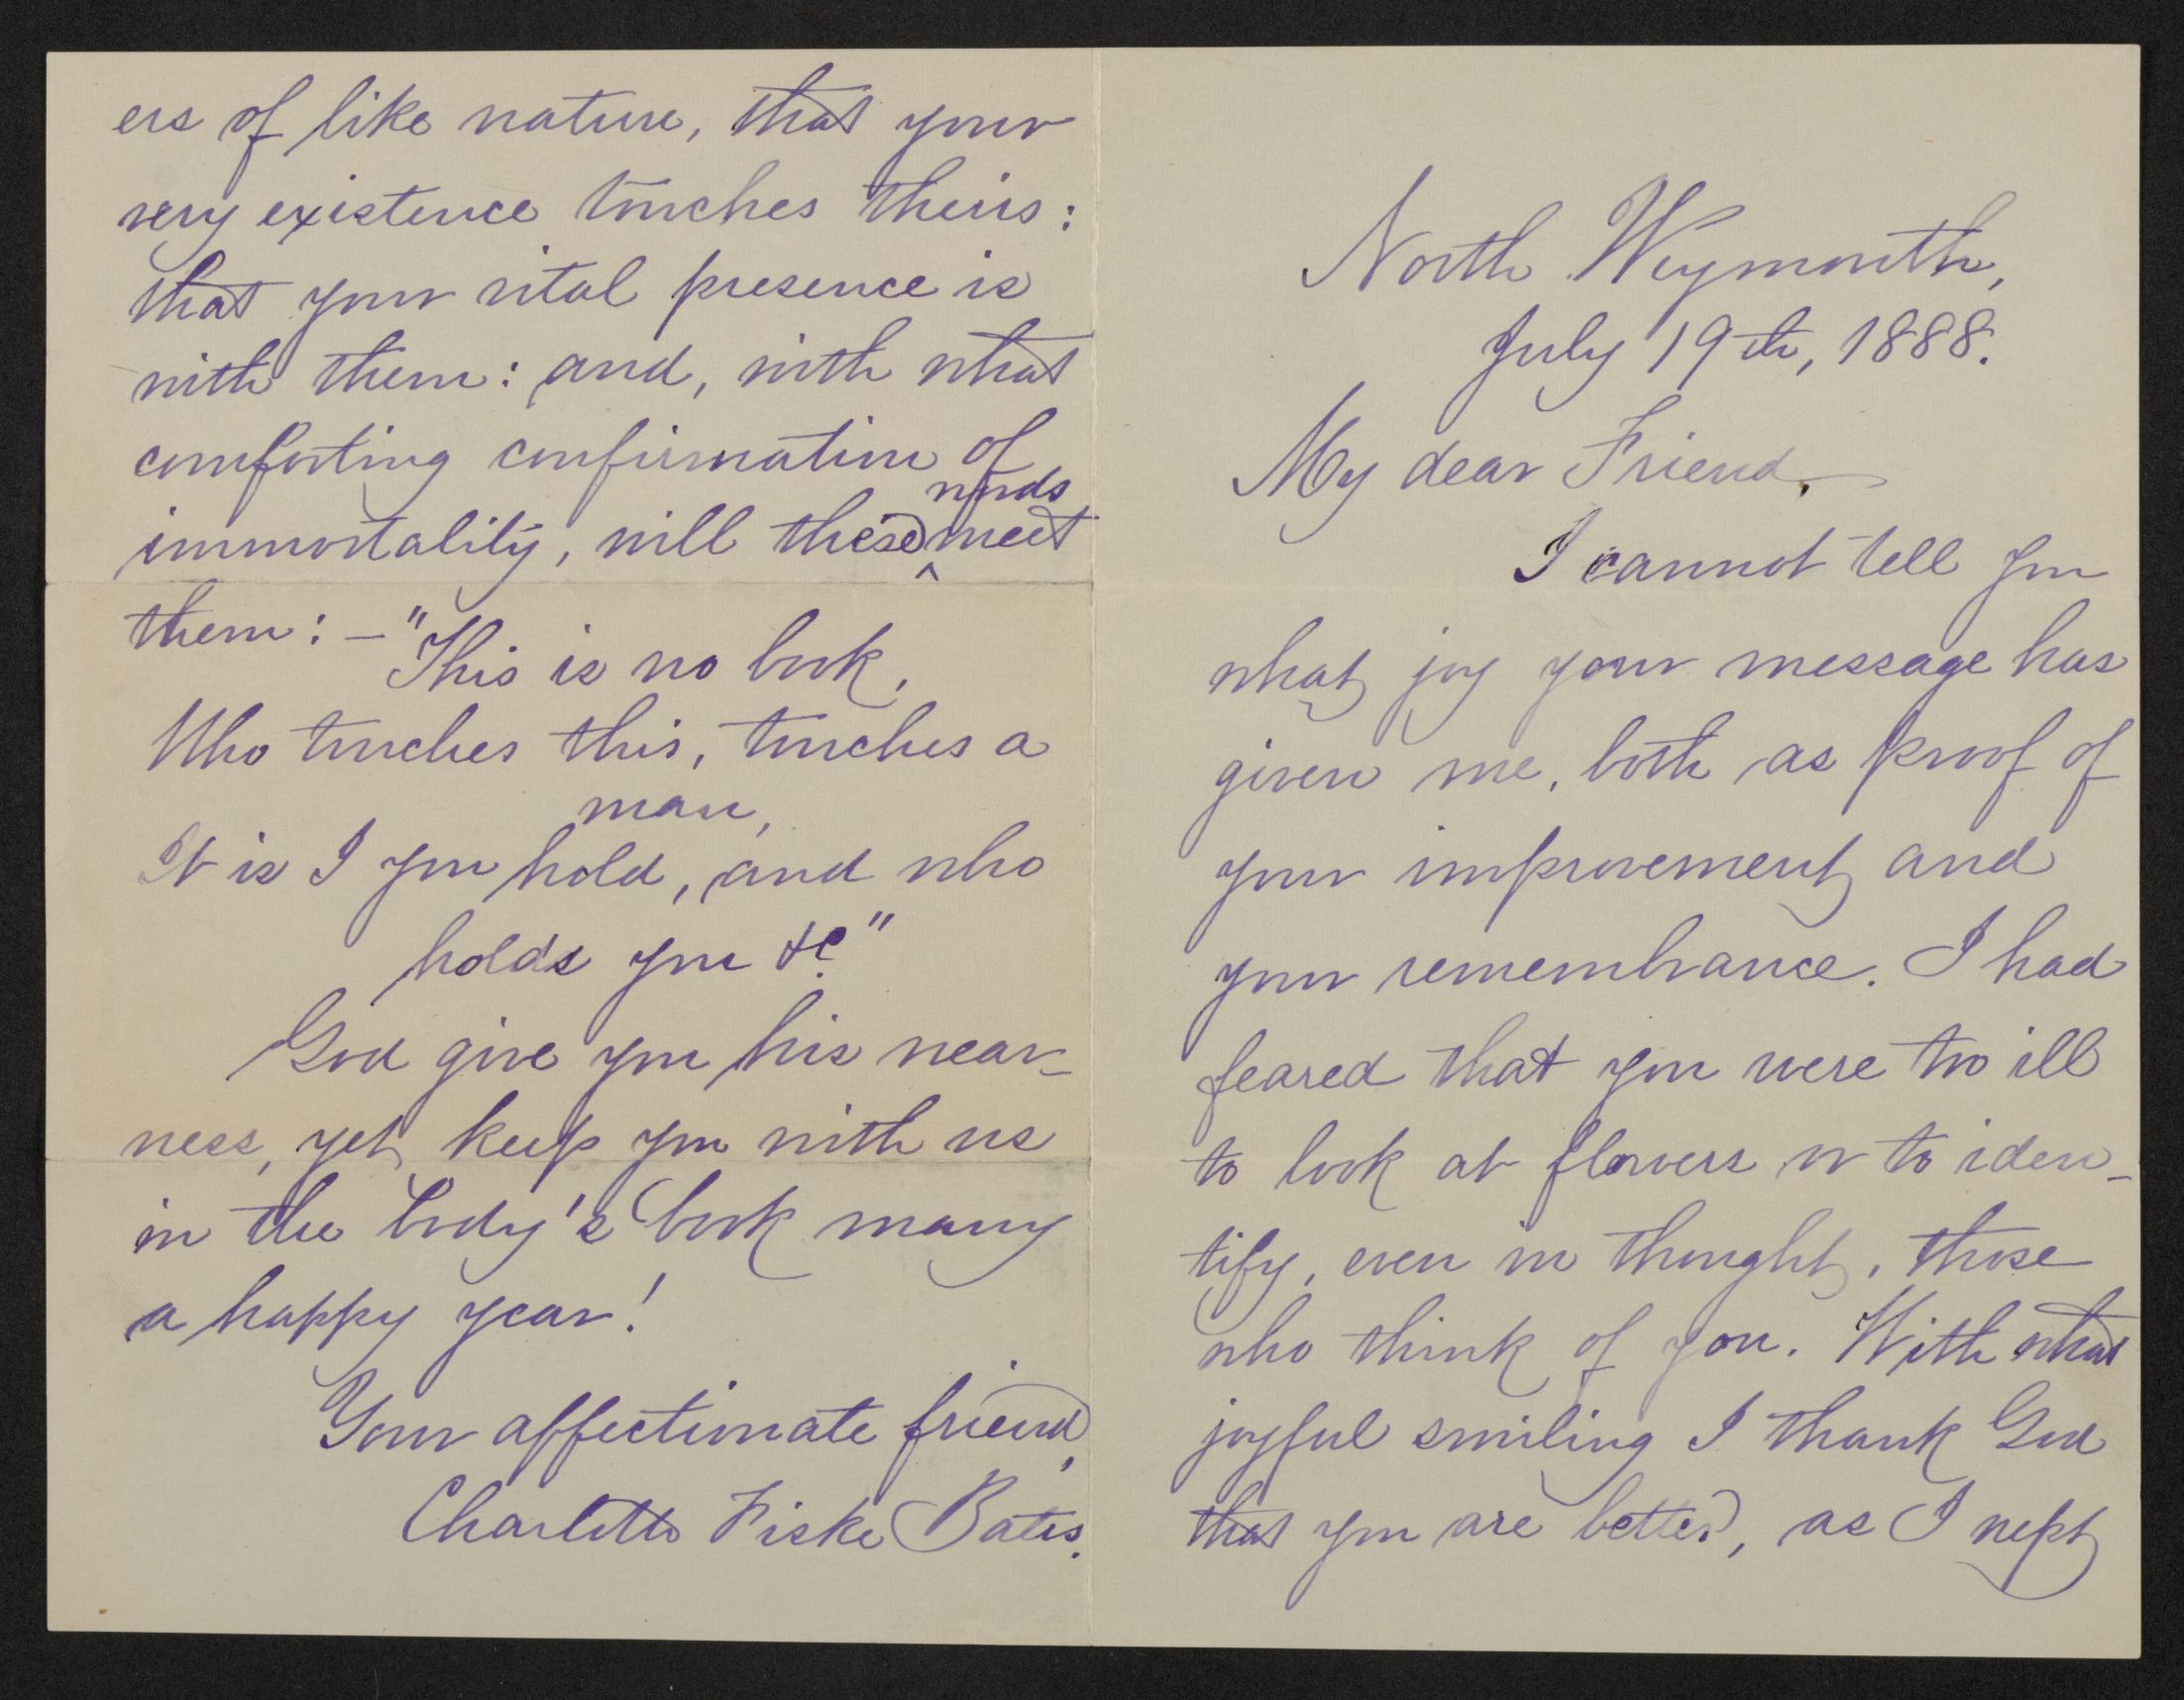 North Weymouth,
July 19th, 1888.
My dear Friend,
I cannot tell you
what joy your message has
given me, both as proof of
your improvement and
your remembrance. I had
feared that you were too ill
to look at flowers or to iden-
tify, even in thought, those
who think of you. With what
joyful smiling I thank God
that you are better, as I wept
ers of like nature, that your
very existence touches theirs:
that your vital presence is
with them: and, with what
comforting confirmation of
words
immortality, will these ^ meet
them: — "This is no book,
Who touches this, touches a
man,
It is I you hold, and who
holds you &c."
God give you his near-
ness, yet keep you with us
in the body's book many
a happy year!
Your affectionate friend,
Charlotte Fiske Bates.